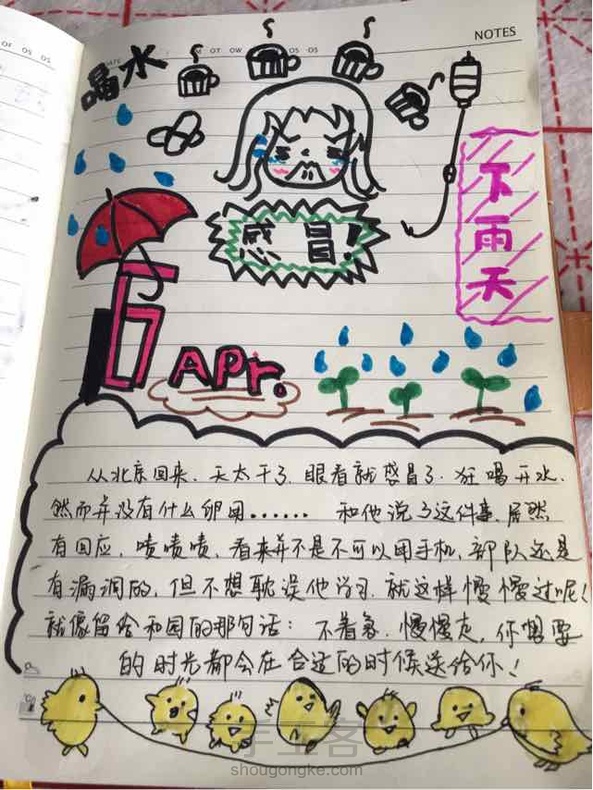 NOTES
喝水
感冒!
下雨天
6
APr.
从北京回来.天太干了.眼看就感冒了.狂喝开水.
然而并没有什么卵用...... 和他说了这件事.居然
有回应,啧啧啧,看来并不是不可以用手机,部队还是
有漏洞的,但不想耽误他学习.就这样慢慢过呢!
就像留给和园的那句话: 不着急.慢慢走,你想要
的时光都会在合适的时候送给你!
手工客
shougongke.com